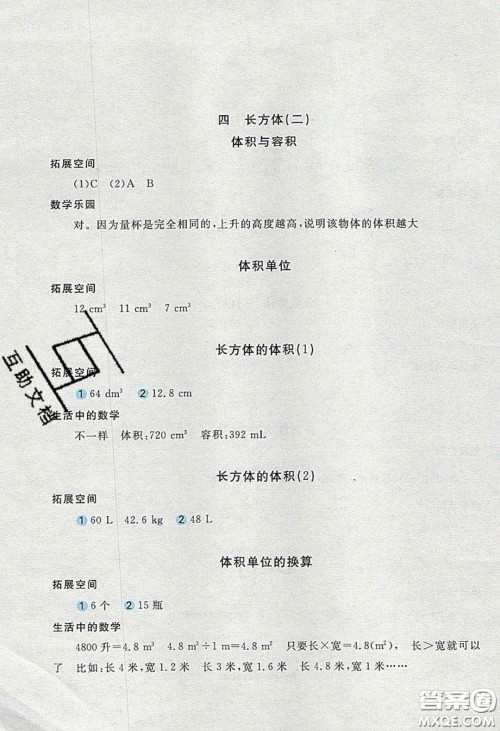 四 长方体(二)
体积与容积
拓展空间
(1)C (2)A B
数学乐园
对。因为量杯是完全相同的,上升的高度越高,说明该物体的体积越大
体积单位
拓展空间
12 cm³ 11 cm³ 7 cm³
长方体的体积(1)
拓展空间
1 64 dm³ 2 12.8 cm
生活中的数学
不一样 体积:720 cm³ 容积:392 mL
长方体的体积(2)
拓展空间
1 60 L 42.6 kg 2 48 L
体积单位的换算
拓展空间
1 6个 2 15瓶
生活中的数学
4800升=4.8 m³ 4.8 m³÷1 m=4.8 m² 只要长×宽=4.8(m²), 长>宽就可以
了 比如:长4米,宽1.2米 长3米,宽1.6米 长4.8米,宽1米……
互助文档
答案圈
MXQE.COM